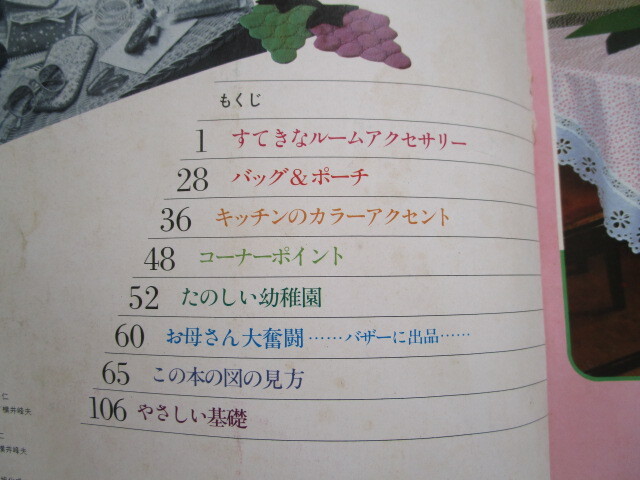 もくじ
1 すてきなルームアクセサリー
28 バッグ&ポーチ
36 キッチンのカラーアクセント
48 コーナーポイント
52 たのしい幼稚園
60 お母さん大奮闘……バザーに出品……
65 この本の図の見方
106 やさしい基礎
仁
横井峰夫
仁
横井峰夫